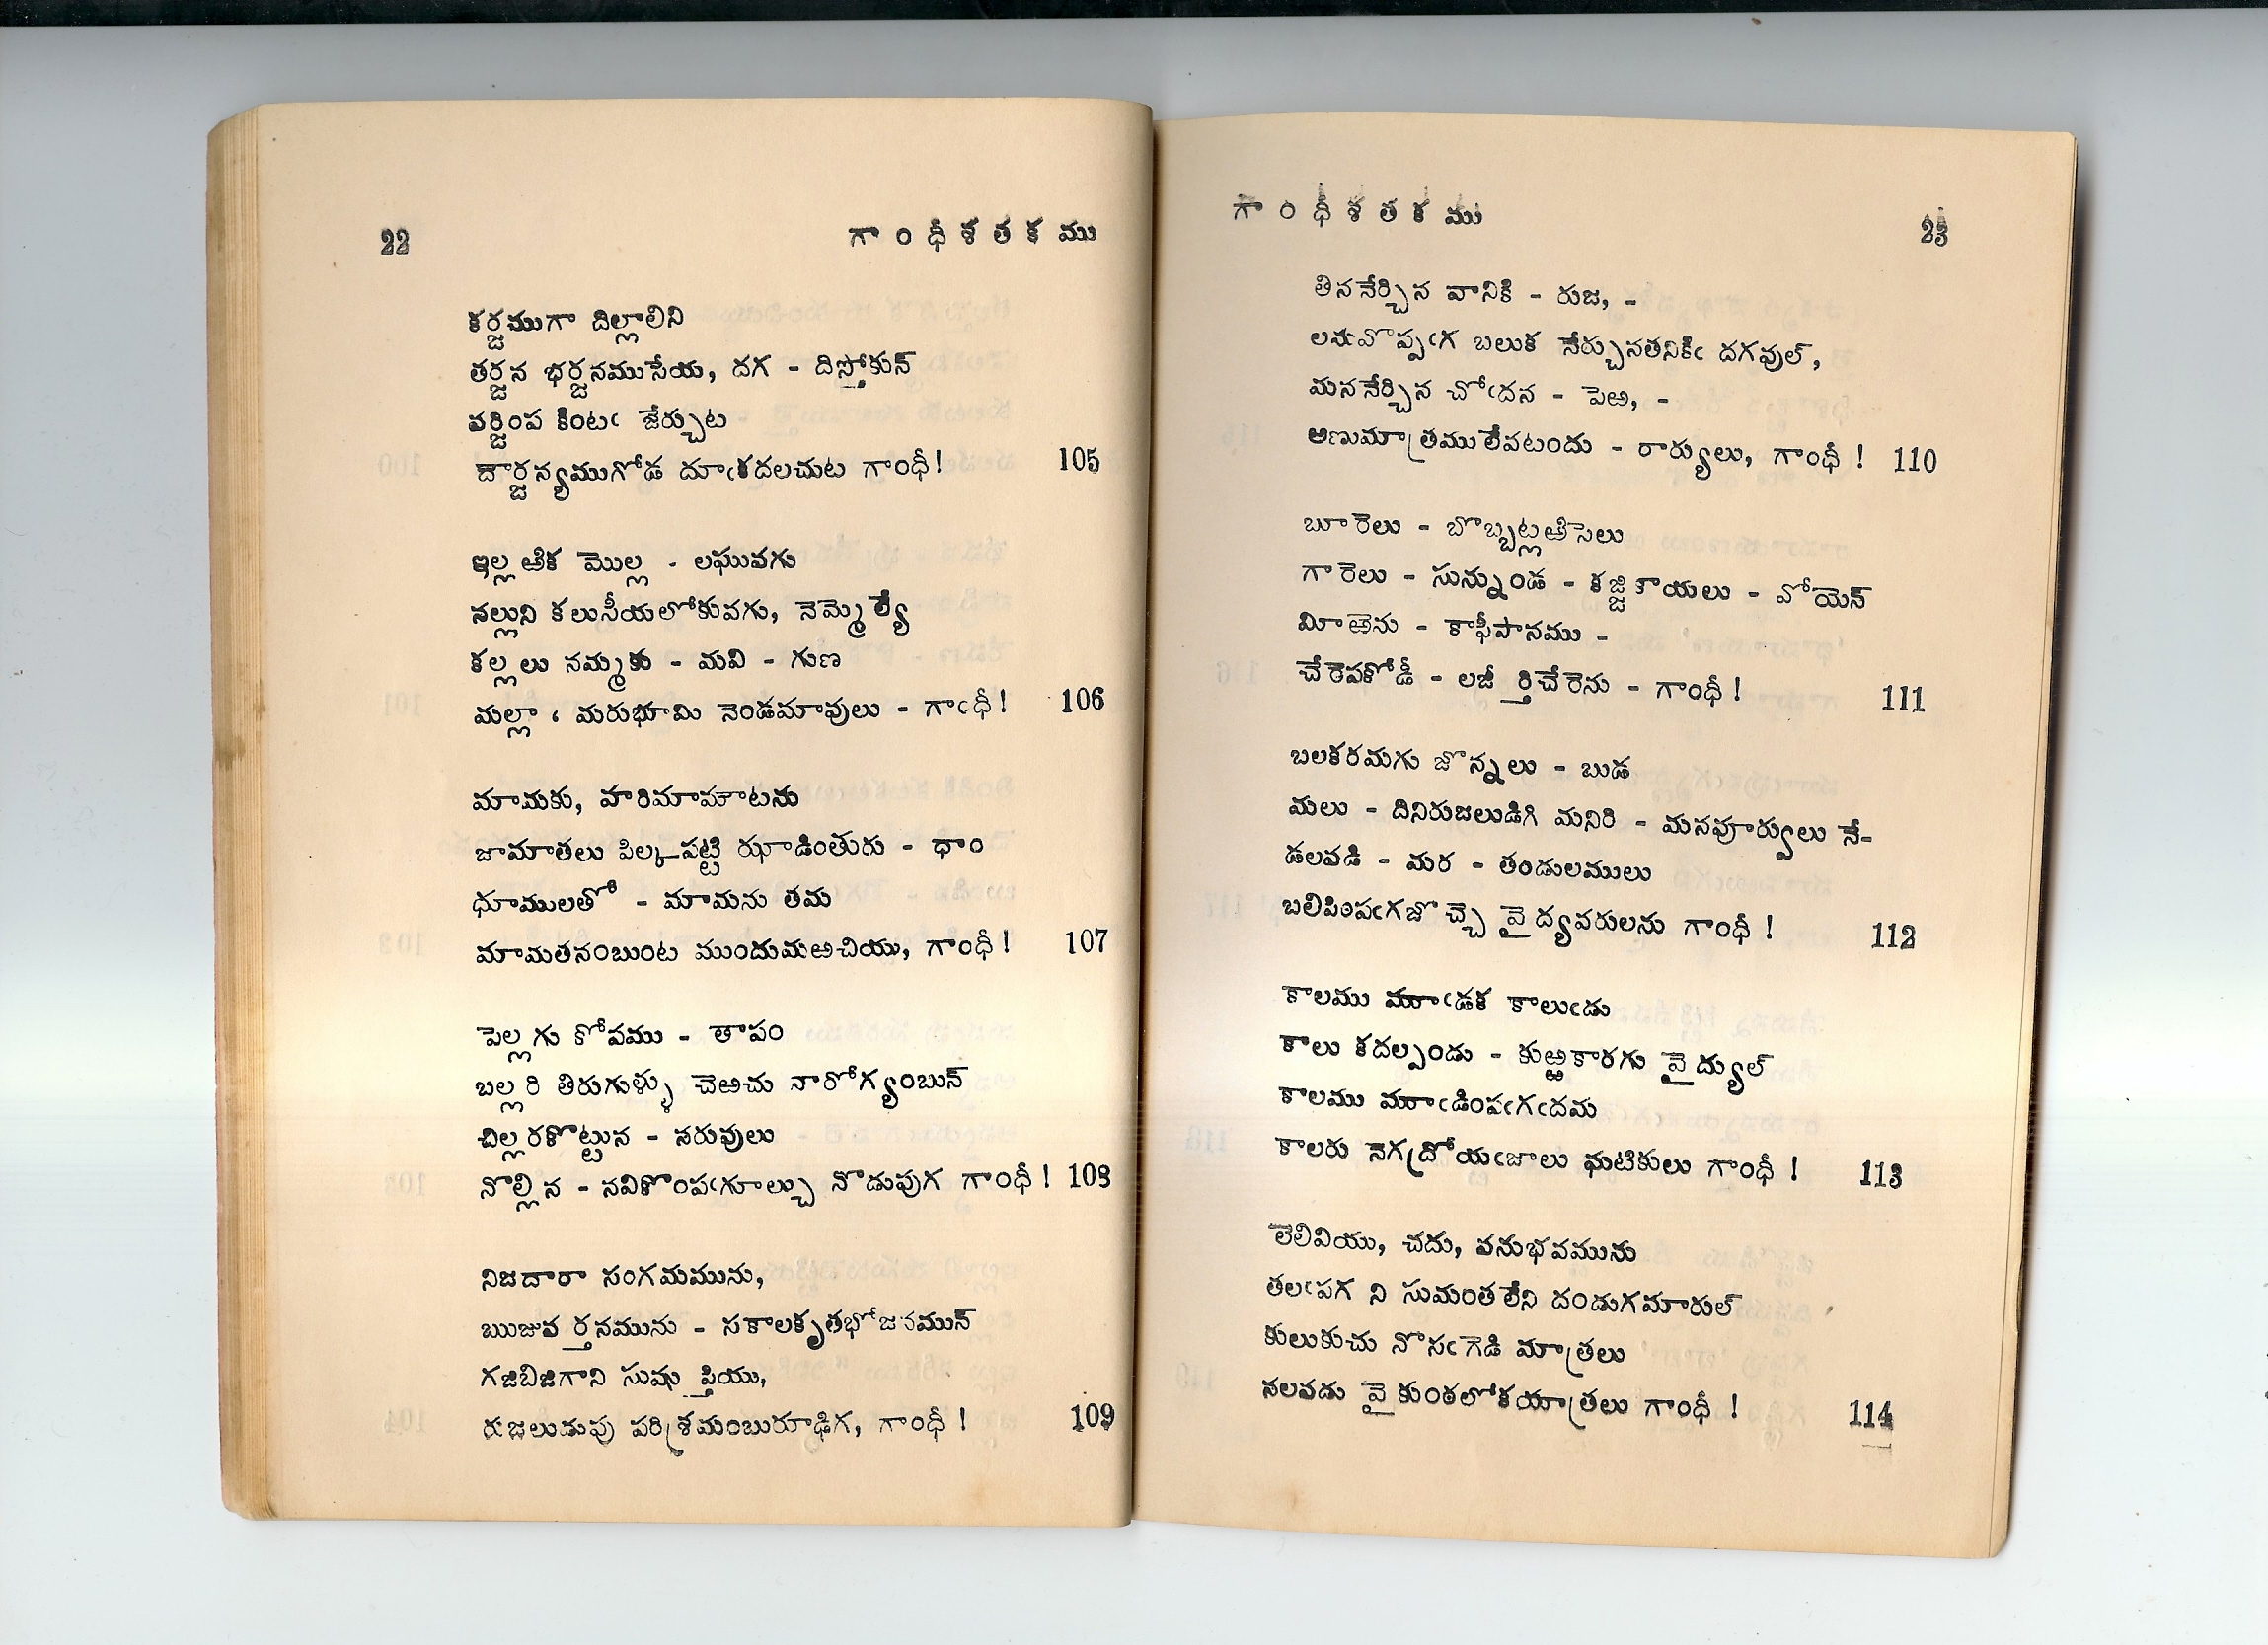 22 గాంధీశతకము
కర్జముగా దిల్లాలిని
తర్జన భర్జనముసేయ, దగ - దిస్తోకున్
వర్జింప కింటఁ జేర్చుట
దౌర్జన్యముగోడ దూఁకదలచుట గాంధీ! 105
ఇల్లఱిక మొల్ల - లఘువగు
నల్లుని కలుసీయలోకువగు, నెమ్మెల్యే
కల్లలు నమ్మకు - మవి - గుణ
మల్లా ః మరుభూమి నెండమావులు - గాంధీ! 106
మామకు, హరిమామాటను
జామాతలు పిల్కపట్టి ఝాడింతురు - ధాం
ధూములతో - మామను తమ
మామతనంబుంట ముందుమఱచియు, గాంధీ! 107
పెల్లగు కోపము - తాపం
బల్లరి తిరుగుళ్ళు చెఱచు నారోగ్యంబున్
చిల్లరకొట్టున - సరువులు
నొల్లిన - నవికొంపఁగూల్చు నొడుపుగ గాంధీ! 108
నిజదారా సంగమమును,
ఋజువర్తనమును - సకాలకృతభోజనమున్
గజిబిజిగాని సుషుప్తియు,
రుజలుడుపు పరిశ్రమంబురూఢిగ, గాంధీ! 109
గాంధీశతకము 23
తిననేర్చిన వానికి - రుజ, -
లనువొప్పఁగ బలుక నేర్చునతనికిఁ దగవుల్,
మననేర్చిన చోఁదన - పెఱ, -
అణుమాత్రములేవటందు - రార్యులు, గాంధీ! 110
బూరెలు - బొబ్బట్లఱిసెలు
గారెలు - సున్నుండ - కజ్జికాయలు - వోయెన్
మీఱెను - కాఫీపానము -
చేరెపకోడీ - లజీర్తిచేరెను - గాంధీ! 111
బలకరమగు జొన్నలు - బుడ
మలు - దినిరుజలుడిగి మనిరి - మనపూర్వులు నే-
డలవడి - మర - తండులములు
బలిపింపఁగజొచ్చె వైద్యవరులను గాంధీ! 112
కాలము మూఁడక కాలుఁడు
కాలు కదల్పండు - కుఱ్ఱకారగు వైద్యుల్
కాలము మూఁడింపఁగఁదమ
కాలరు నెగద్రోయఁజాలు ఘటికులు గాంధీ! 113
లెలివియు, చదు, వనుభవమును
తలఁపగ ని సుమంతలేని దండుగమారుల్
కులుకుచు నొసఁగెడి మాత్రలు
నలవడు వైకుంఠలోకయాత్రలు గాంధీ! 114